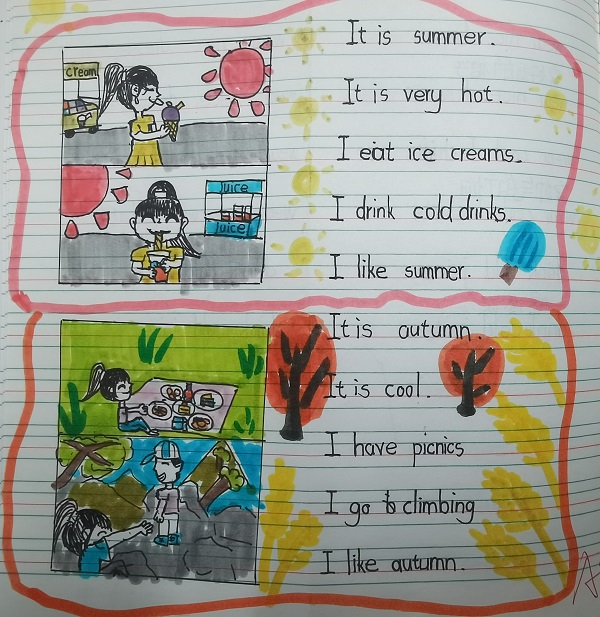 cream
It is summer.
It is very hot.
I eat ice creams.
Juice
Juice
I drink cold drinks.
I like summer.
It is autumn.
It is cool.
I have picnics
I go to climbing
I like autumn.
A